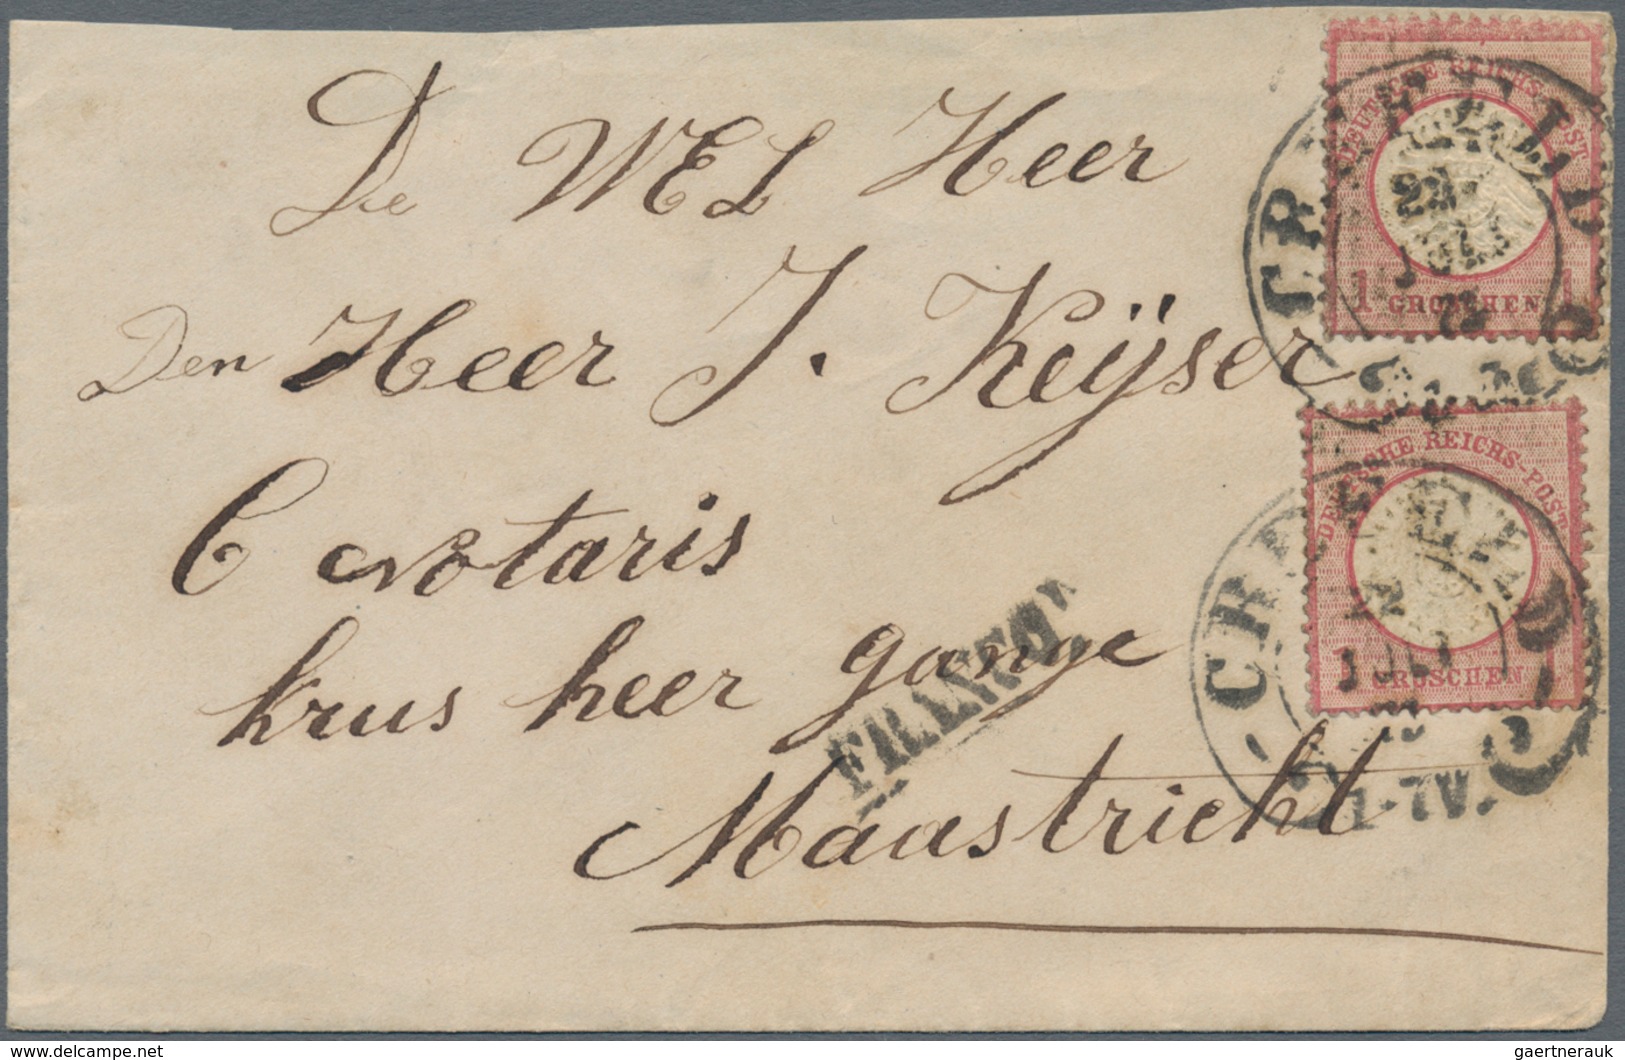 De WEL Heer
Den Heer J. Keÿser
Notaris
krus heer gange
Maastricht
FRANCO
DEUTSCHE REICHS-POST
1 GROSCHEN 1
DEUTSCHE REICHS-POST
1 GROSCHEN 1
CREFELD
23
CREFELD
JULI
-7V.
delcampe.net
gaertnerauk